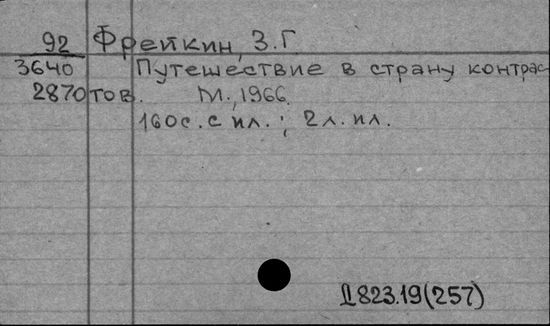 92 Фрейкин, З.Г.
3640 Путешествие в страну контрас-
2870 тов. М., 1966.
160с. с ил.; 2л. ил.
Д823.19(257)